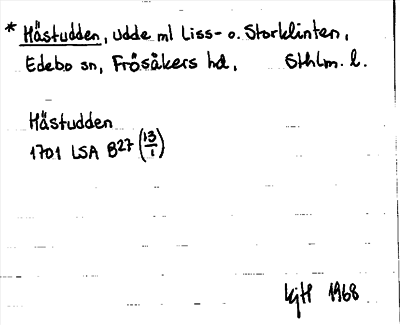 * Hästudden, udde ml Liss- o. Storklinten,
Edebo sn, Frösåkers hd, Sthlm. l.
Hästudden
1701 LSA B27 (13/1)
1968